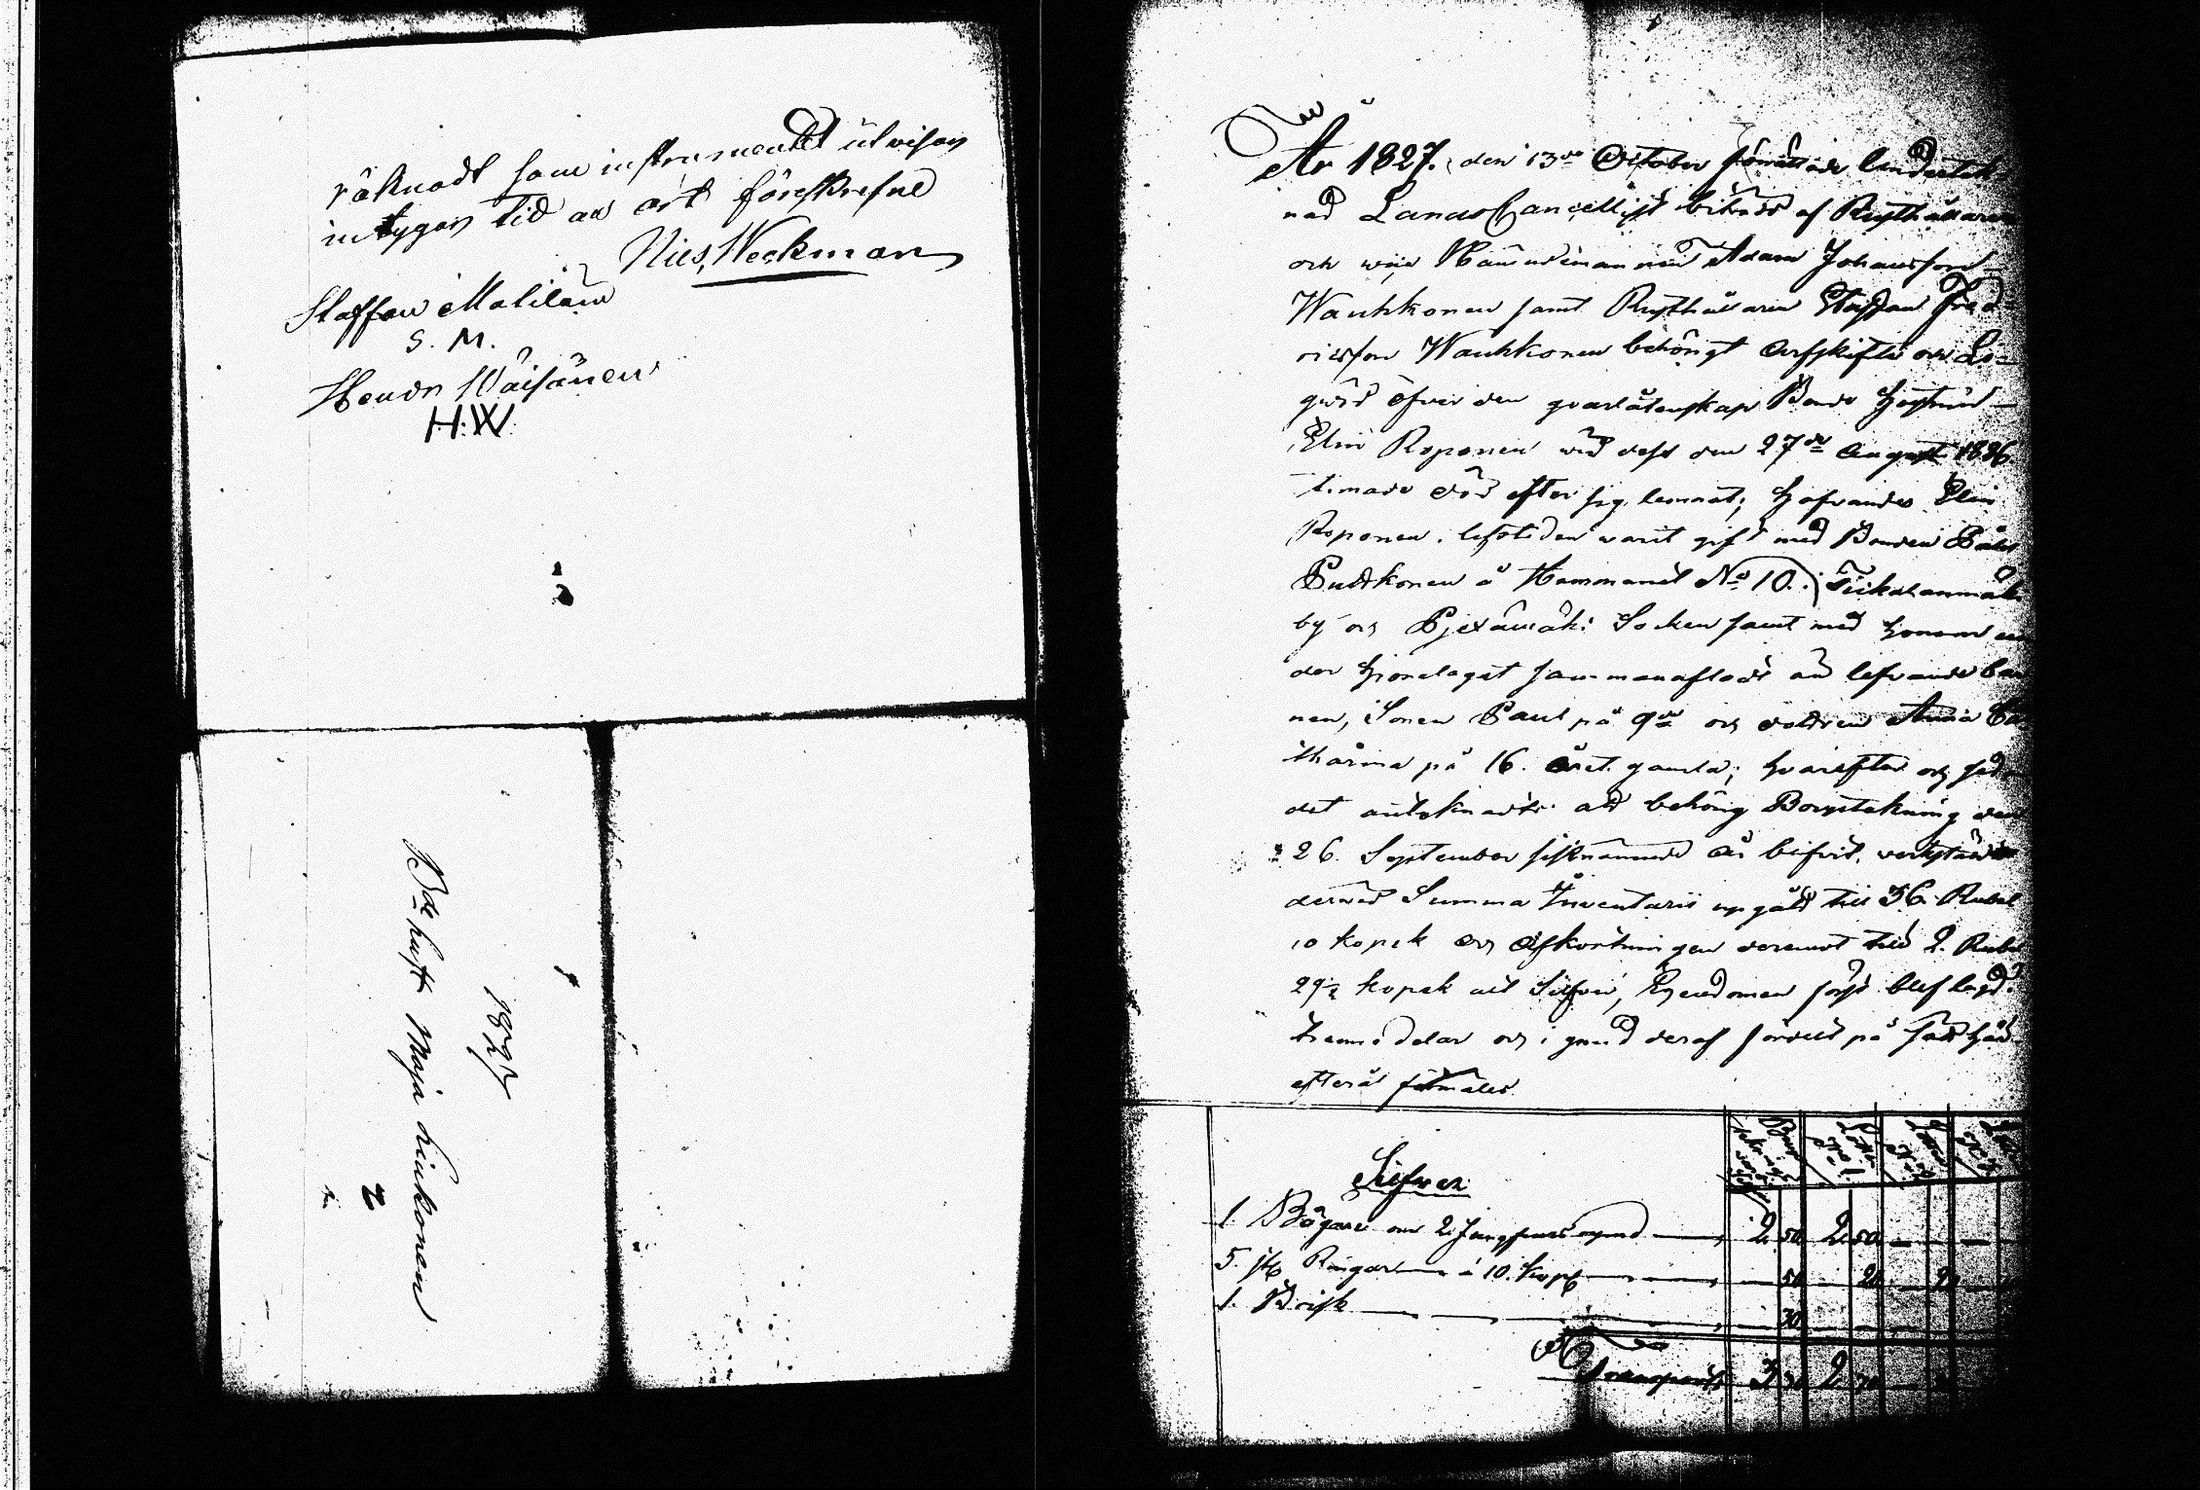 räknadt som instrumentet utvisar
intygar tid av ort förskrefne
Nils Weckman
Staffan Matilain
S. M.
Hendr Wäisänen
H.W.
1827
Bde hust: Maja Liukonen
2
År 1827. den 13de October förrättade undertek
nad Lands Cancellist biträdd af Rusthållaren
och Nämndemannen Adam Johansson
Wauhkonen samt Rusthållaren Staffan Fred
ricsson Wauhkonen behörigt arfskifte och
öfver den qvarlåtenskap Bonde Hustrun
Elin Roponen vid dess den 27de August 1826
timade död efter sig lemnat; hafvandes Elin
Roponen i lifstiden varit gift med Bonden Påhl
Puckonen å Hemmanet No 10. i
by och Pjexämäki Socken samt med honom un
der hjonelaget sammanafladt än lefvande bar
nen, Sonen Paul på 9de och dottren Anna Ca
tharina på 16. året gamla; hvarefter och sedan
det antecknadts att behörig Boupteckning den
26. September sistnämnde år blifvit verkstäld
dervid Summa Inventarii upgått till 36. Rubel
10 kopek och Afkortningen deremot till 2. Rubel
29½ kopek alt Silfver, Egendomen först blef lagd i
trenne delar och i grund deraf fördelt på sätt här
efteråt förmäles
Silfver
1. Bägare om 2 Jungfrurs rymd 2 50 2 50
5. st Ringar á 10. kop 50 20
1. Brisk 30
Transport 3 30 2 70